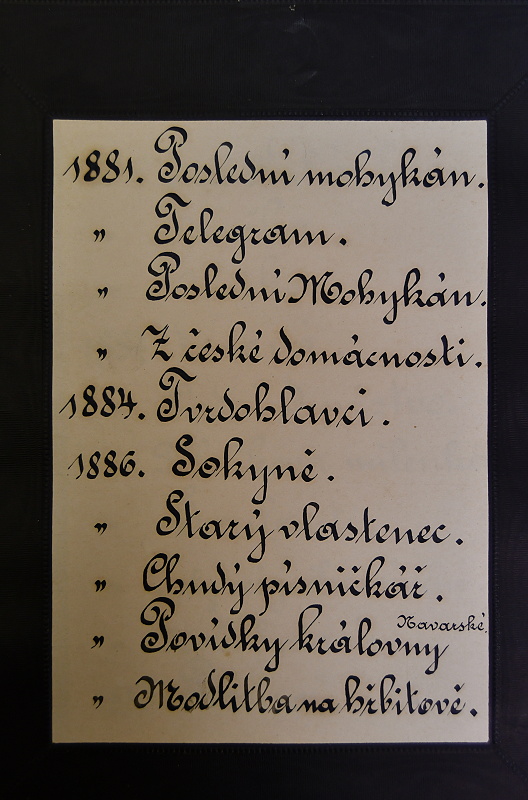 1881. Poslední mohykán.
„ Telegram.
„ Poslední Mohykán.
„ Z české domácnosti.
1884. Tvrdohlavci.
1886. Sokyně.
„ Starý vlastenec.
„ Chudý písničkář.
„ Povídky královny Navarské.
„ Modlitba na hřbitově.